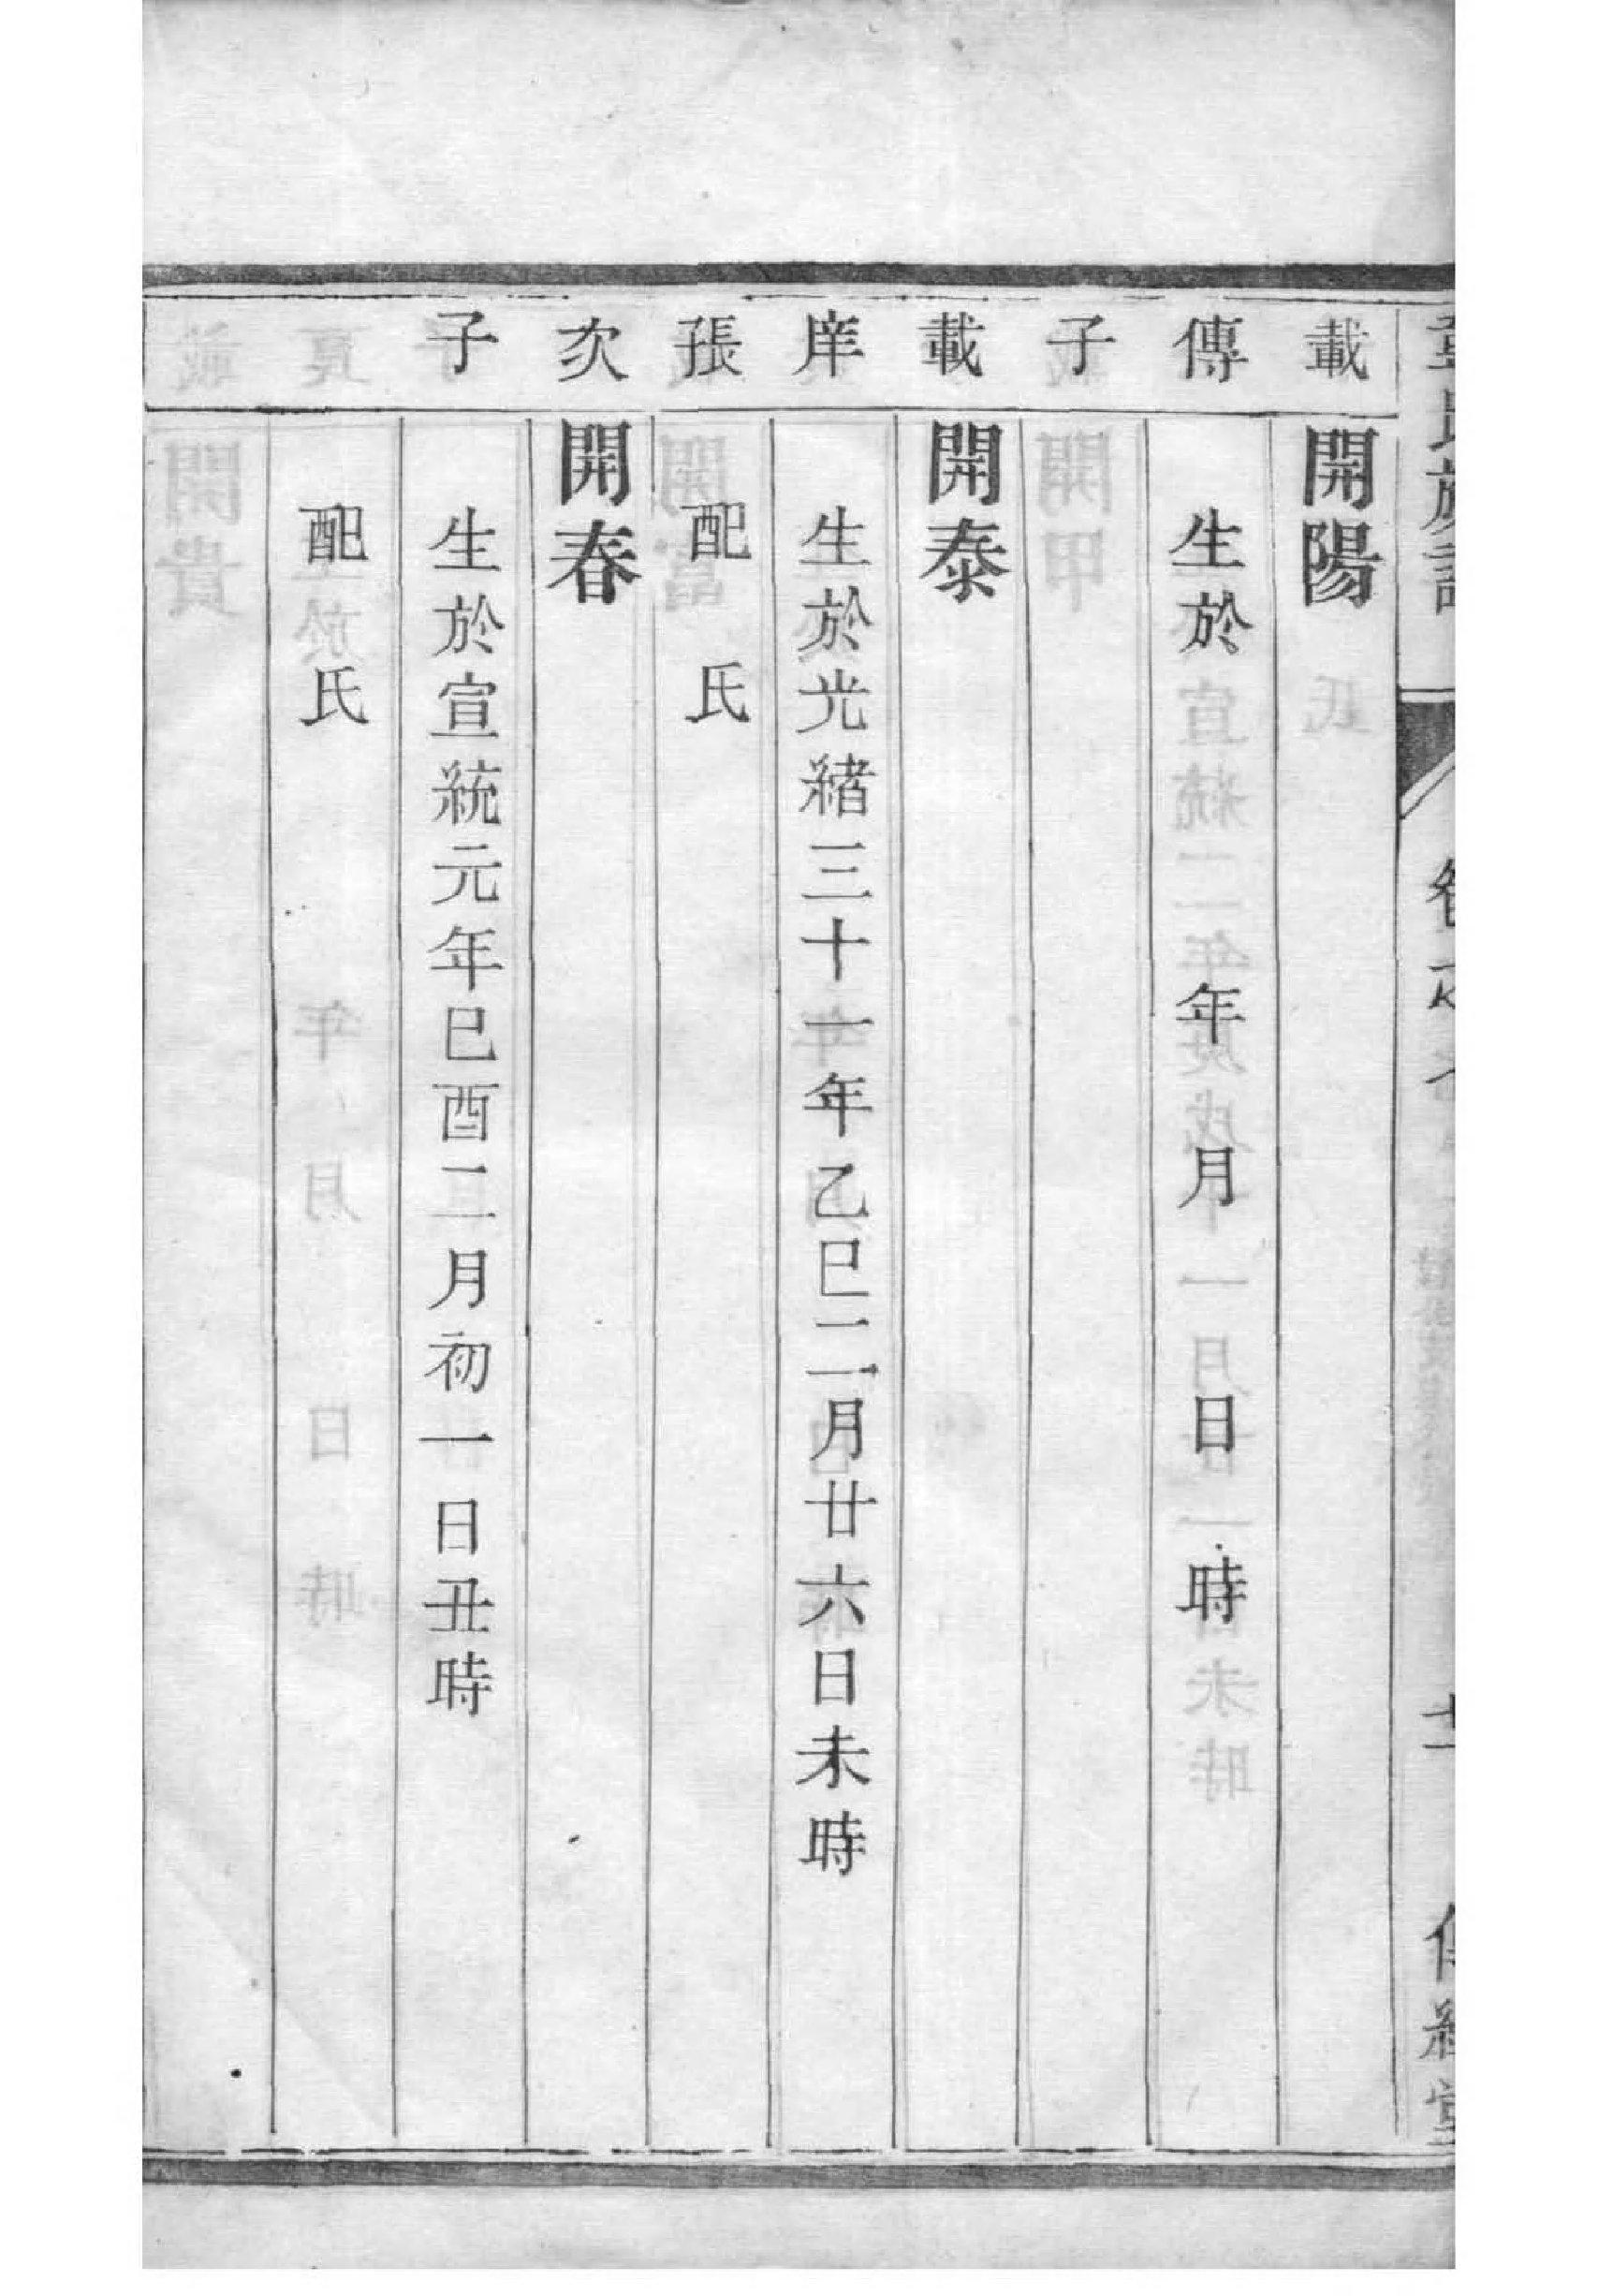 載
開陽
傳
生於 年 月 日 時
子
載
開泰
庠
生於光緒三十一年乙巳二月廿六日未時
張
配 氏
次
開春
子
生於宣統元年巳酉二月初一日丑時
配 氏